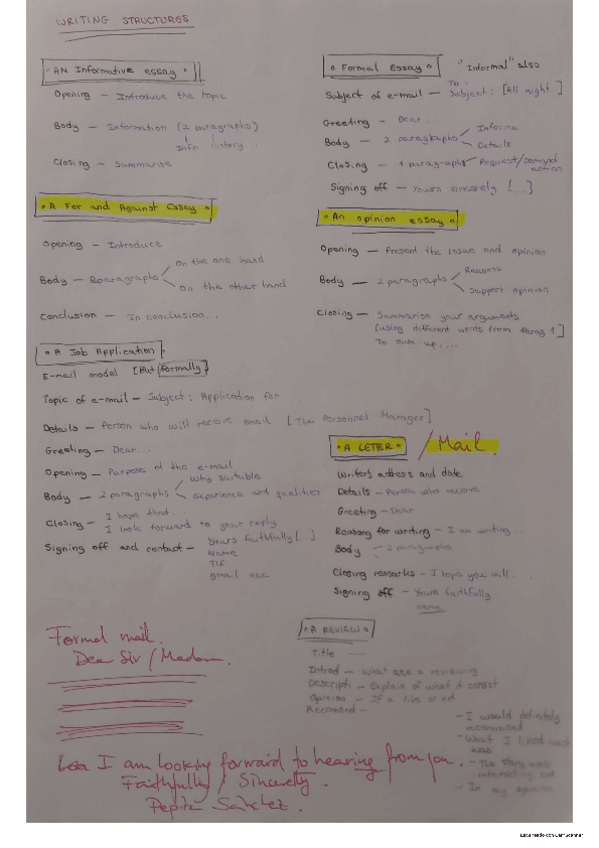 WRITING STRUCTURES
AN Informative essay
Opening — Introduce the topic
Body — Information (2 paragraphs)
Info history...
Closing — Summarise
A For and Against Essay
Opening — Introduce
Body — Paragraphs
On the one hand
On the other hand
Conclusion — In conclusion...
A Job Application
E-mail model [But formally]
Topic of e-mail — Subject: Application for
Details — Person who will receive email [The Personnel Manager]
Greeting — Dear...
Opening — Purpose of the e-mail
Body — 2 paragraphs
why suitable
experience and qualities
Closing — I hope that...
I look forward to your reply
Signing off and contact — Yours faithfully [...]
Name
Tlf
gmail acc
Formal mail.
Dear Sir / Madam.
I am looking forward to hearing from you.
Faithfully / Sincerely.
Pepita Sánchez.
Formal Essay "Informal" also
To:
Subject of e-mail — Subject: [All night]
Greeting — Dear...
Body — 2 paragraphs
Informa
Details
Closing — 1 paragraphs Request/Demand action
Signing off — Yours sincerely [...]
An opinion essay
Opening — Present the issue and opinion
Body — 2 paragraphs
Reasons
Support opinion
Closing — Summarise your arguments
[using different words from parag 1]
To sum up,...
A LETTER / Mail.
Writers address and date
Details — Person who receive
Greeting — Dear
Reasong for writing — I am writing...
Body — 2 paragraphs
Closing remarks — I hope you will...
Signing off — Yours faithfully
name
A REVIEW
Title
Introd — What are a reviewing
Descripti — Explain of what it consist
Opinion — If a like or not
Recomend —
- I would definitely recommend
- What I liked most was
- The story was interesting
- In my opinion